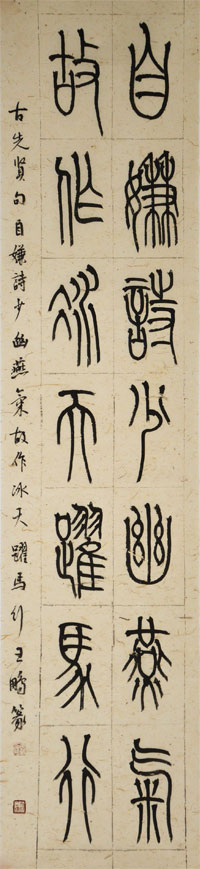 自嫌詩少幽燕氣
故作冰天躍馬行
古先賢句自嫌詩少幽燕氣故作冰天躍馬行王鵬篆